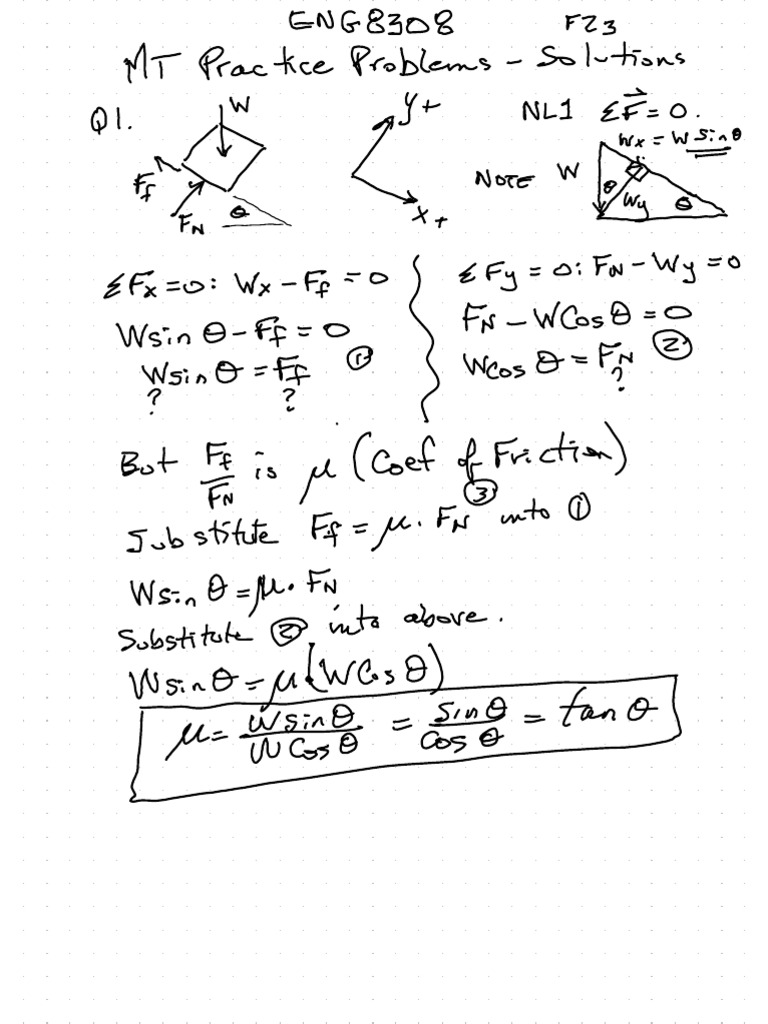 ENG8308 F23
MT Practice Problems - Solutions
Q1.
W
Ff
FN
θ
y+
x+
NL1 ΣF⃗ = 0.
Wx = W sin θ
NOTE W
θ
Wy
θ
ΣFx = 0: Wx - Ff = 0
W sin θ - Ff = 0
W sin θ = Ff ①
? ?
ΣFy = 0: FN - Wy = 0
FN - W Cos θ = 0
W Cos θ = FN ②
?
But Ff/FN is μ (Coef of Friction)
③
Substitute Ff = μ. FN into ①
W sin θ = μ. FN
Substitute ② into above.
W sin θ = μ (W Cos θ)
μ = W sin θ / W Cos θ = sin θ / cos θ = tan θ